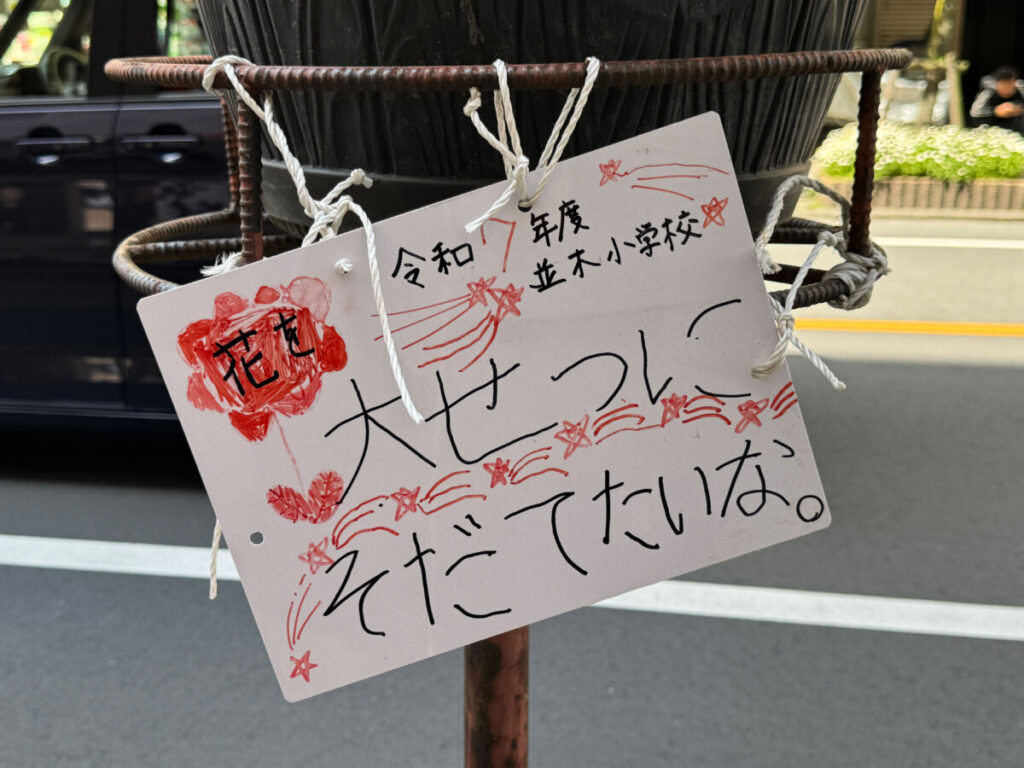 令和7年度
並木小学校
花を
大せつに
そだてたいな。